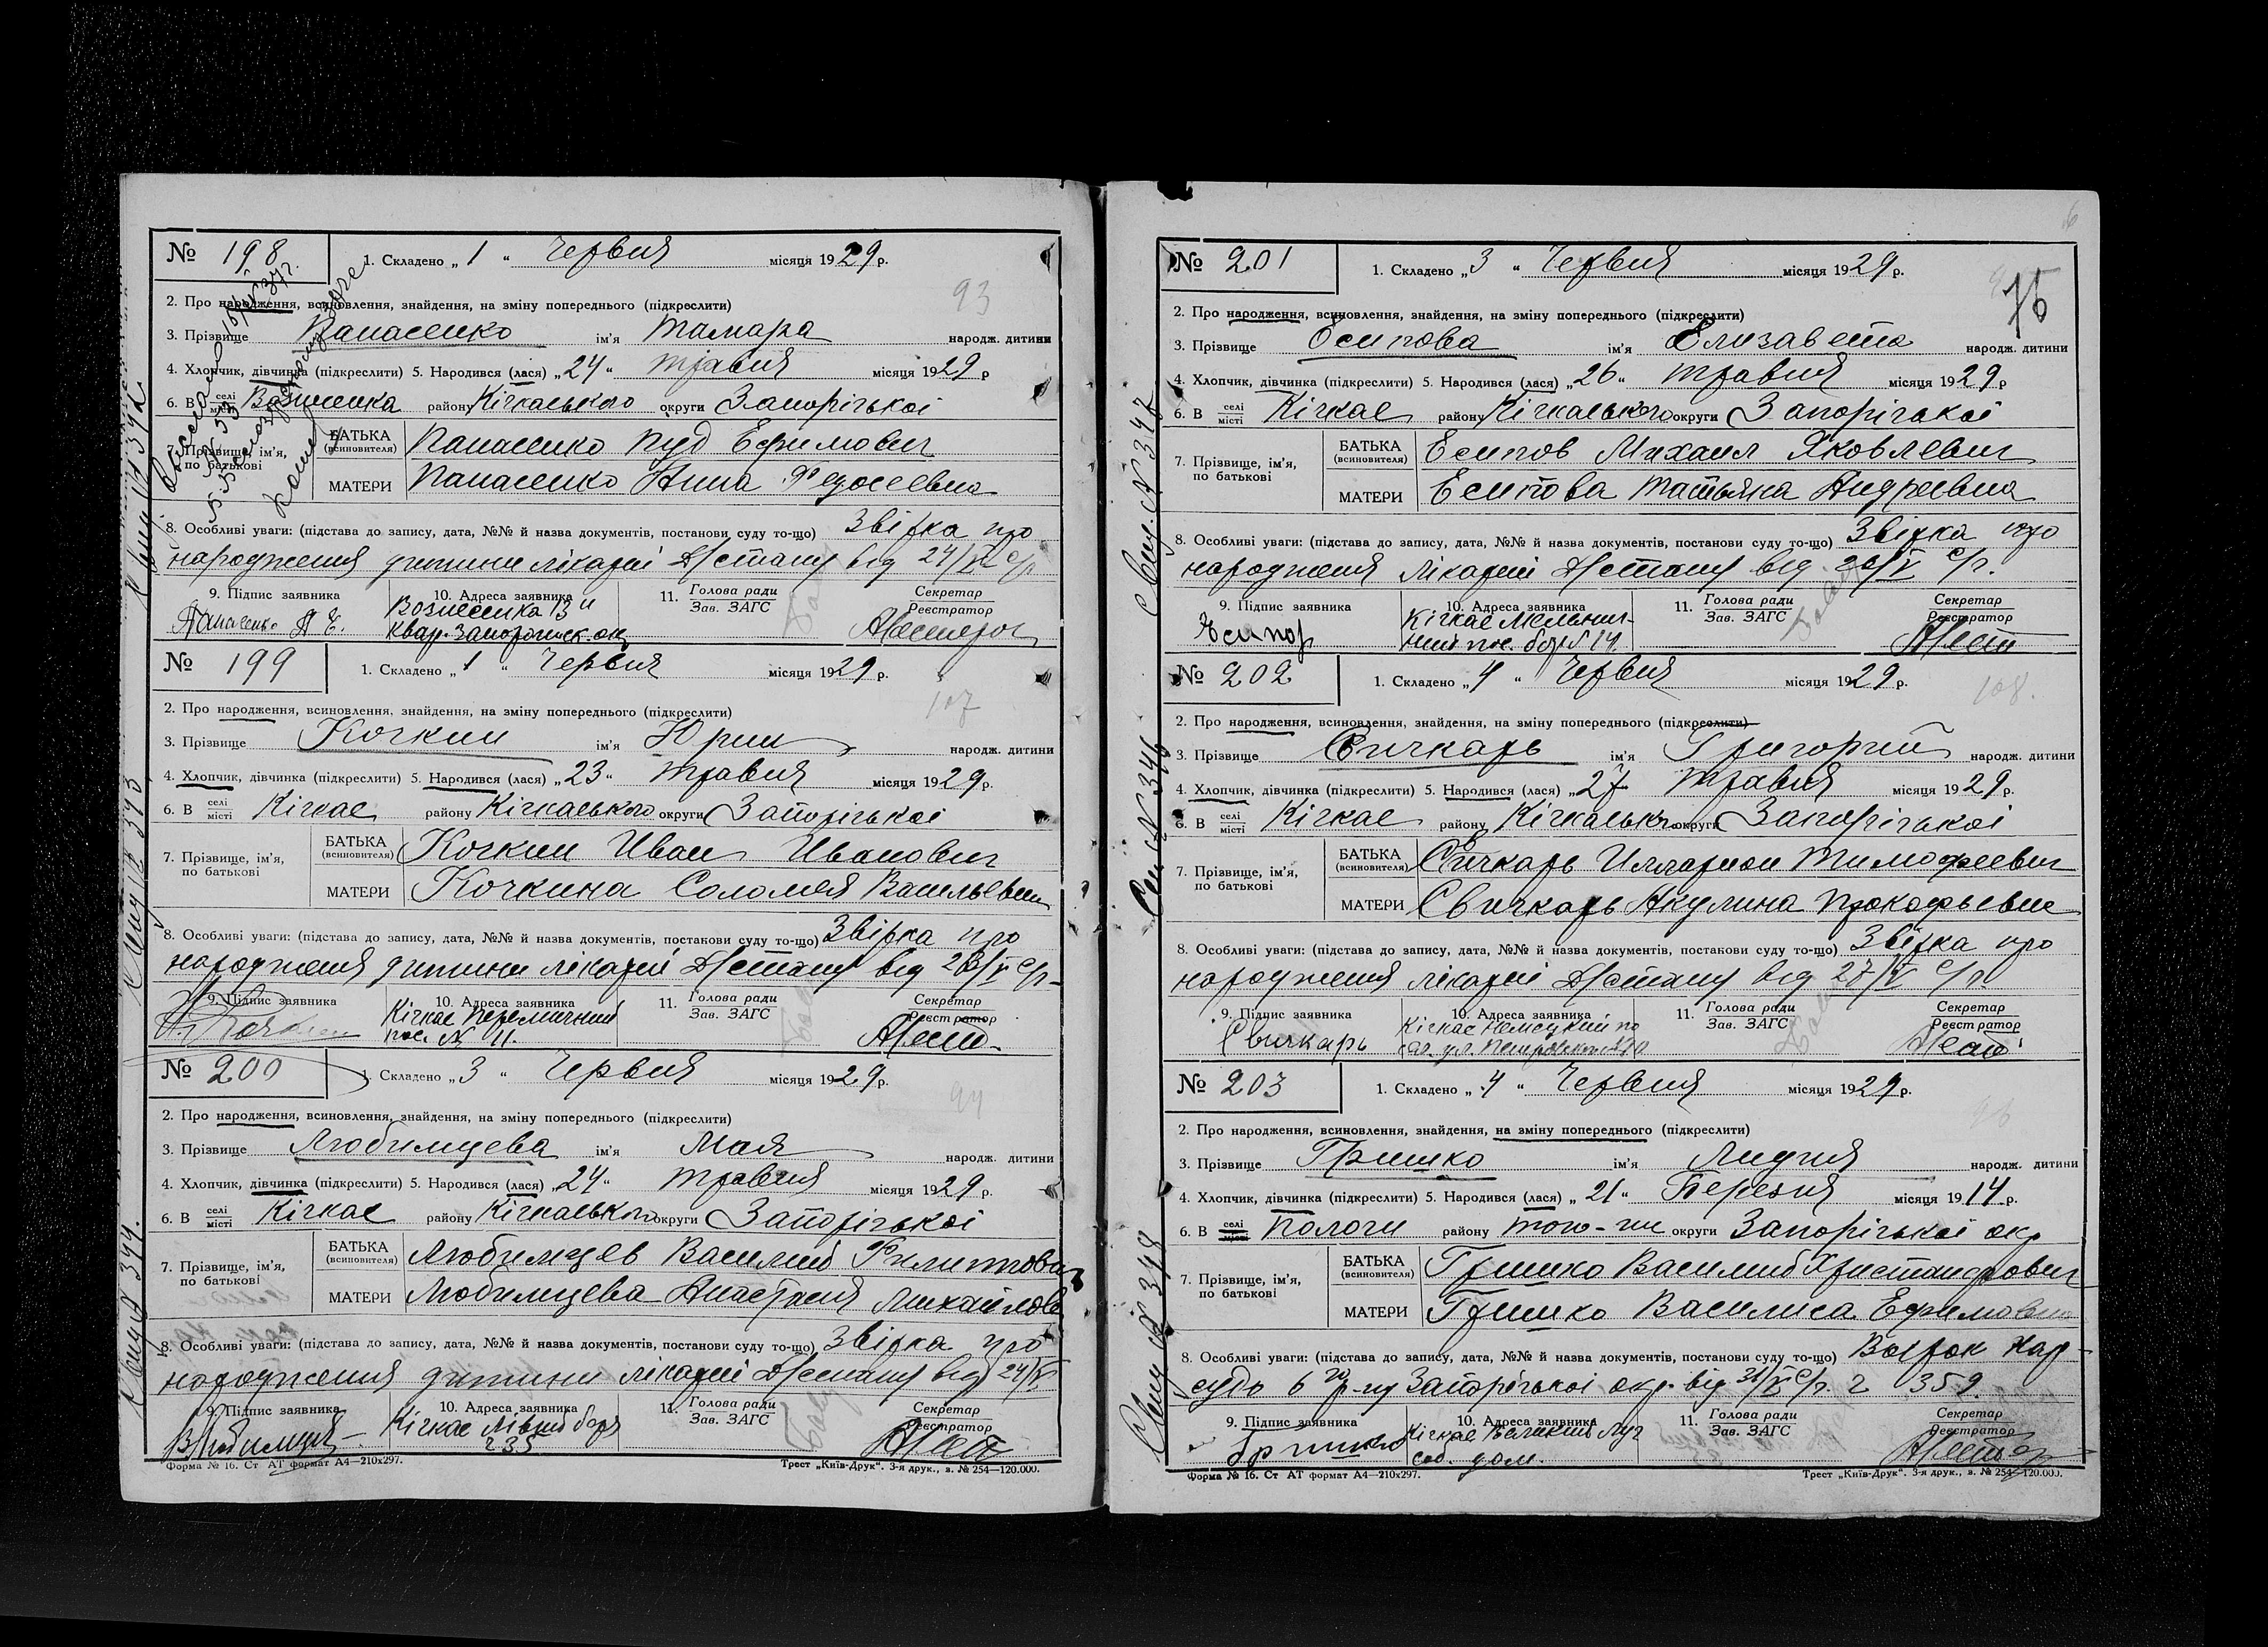 № 198 1. Складено „1“ Червня місяця 1929 р.
93
2. Про народження, всиновлення, знайдення, на зміну попереднього (підкреслити)
3. Прізвище Панасенко ім'я Тамара народж. дитини
4. Хлопчик, дівчинка (підкреслити) 5. Народився (лася) „24“ травня місяця 1929 р
6. В селі місті Вознесенка району Кічкаського округи Запорізької
7. Прізвище, ім'я, по батькові БАТЬКА (всиновителя) Панасенко Пуд Ефимович
МАТЕРИ Панасенко Нина Федосеевна
8. Особливі уваги: (підстава до запису, дата, №№ й назва документів, постанови суду то-що) Звістка про
народження дитини лікарні Д/стану від 24/V с/р
9. Підпис заявника 10. Адреса заявника 11. Голова ради Зав. ЗАГС Секретар Реєстратор
Панасенко П. Е. Вознесенка 13й
квар. Запорожск. ок
№ 199 1. Складено „1“ Червня місяця 1929 р.
107
2. Про народження, всиновлення, знайдення, на зміну попереднього (підкреслити)
3. Прізвище Кочкин ім'я Юрий народж. дитини
4. Хлопчик, дівчинка (підкреслити) 5. Народився (лася) „23“ травня місяця 1929 р.
6. В селі місті Кічкас району Кічкаського округи Запорізької
7. Прізвище, ім'я, по батькові БАТЬКА (всиновителя) Кочкин Иван Иванович
МАТЕРИ Кочкина Соломея Васильевна
8. Особливі уваги: (підстава до запису, дата, №№ й назва документів, постанови суду то-що) Звістка про
народження дитини лікарні Д/стану від 23/V с/р
9. Підпис заявника 10. Адреса заявника 11. Голова ради Зав. ЗАГС Секретар Реєстратор
Кічкас
пос. № 11.
№ 200 1. Складено „3“ Червня місяця 1929 р.
94
2. Про народження, всиновлення, знайдення, на зміну попереднього (підкреслити)
3. Прізвище Любимцева ім'я Мая народж. дитини
4. Хлопчик, дівчинка (підкреслити) 5. Народився (лася) „24“ травня місяця 1929 р.
6. В селі місті Кічкас району Кічкаського округи Запорізької
7. Прізвище, ім'я, по батькові БАТЬКА (всиновителя) Любимцев Василий Филиппович
МАТЕРИ Любимцева Анастасия Михайлов
8. Особливі уваги: (підстава до запису, дата, №№ й назва документів, постанови суду то-що) Звістка про
народження дитини лікарні Д/стану від 24/V
9. Підпис заявника 10. Адреса заявника 11. Голова ради Зав. ЗАГС Секретар Реєстратор
В Любимцев Кічкас Лівий бер
235
Форма № 16. Ст АТ формат А4—210х297. Трест „Київ-Друк“. 3-я друк., з. № 254—120.000.
№ 201 1. Складено „3“ Червня місяця 1929 р.
75
2. Про народження, всиновлення, знайдення, на зміну попереднього (підкреслити)
3. Прізвище Есипова ім'я Елизавета народж. дитини
4. Хлопчик, дівчинка (підкреслити) 5. Народився (лася) „26“ травня місяця 1929 р
6. В селі місті Кічкас району Кічкаського округи Запорізької
7. Прізвище, ім'я, по батькові БАТЬКА (всиновителя) Есипов Михаил Яковлевич
МАТЕРИ Есипова Татьяна Андреевна
8. Особливі уваги: (підстава до запису, дата, №№ й назва документів, постанови суду то-що) Звістка про
народження лікарні Д/стану від 26/V с/р.
9. Підпис заявника 10. Адреса заявника 11. Голова ради Зав. ЗАГС Секретар Реєстратор
Есипов Кічкас
№ 202 1. Складено „4“ Червня місяця 1929 р.
108.
2. Про народження, всиновлення, знайдення, на зміну попереднього (підкреслити)
3. Прізвище Свичкарь ім'я Григорий народж. дитини
4. Хлопчик, дівчинка (підкреслити) 5. Народився (лася) „27 травня місяця 1929 р.
6. В селі місті Кічкас району Кічкаського округи Запорізької
7. Прізвище, ім'я, по батькові БАТЬКА (всиновителя) Свичкарь Илларион Тимофеевич
МАТЕРИ Свичкарь Акулина Прокофьевна
8. Особливі уваги: (підстава до запису, дата, №№ й назва документів, постанови суду то-що) Звістка про
народження лікарні Д/стану від 27/V с/р.
9. Підпис заявника 10. Адреса заявника 11. Голова ради Зав. ЗАГС Секретар Реєстратор
Свичкарь Кічкас
№ 203 1. Складено „4“ Червня місяця 1929 р.
2. Про народження, всиновлення, знайдення, на зміну попереднього (підкреслити)
3. Прізвище Гришко ім'я Лидия народж. дитини
4. Хлопчик, дівчинка (підкреслити) 5. Народився (лася) „21“ Березня місяця 1914 р.
6. В селі місті Пологи району того-ж округи Запорізької окр
7. Прізвище, ім'я, по батькові БАТЬКА (всиновителя) Гришко Василий Христанфович
МАТЕРИ Гришко Василиса Ефимовна
8. Особливі уваги: (підстава до запису, дата, №№ й назва документів, постанови суду то-що) Вирок Нар-
суда 6го р-ну Запорізької окр. від 31/V с/р. 2 359.
9. Підпис заявника 10. Адреса заявника 11. Голова ради Зав. ЗАГС Секретар Реєстратор
Гришко Кічкас Великий Луг
соб. дом.
Форма № 16. Ст АТ формат А4—210х297. Трест „Київ-Друк“. 3-я друк., з. № 254—120.000.